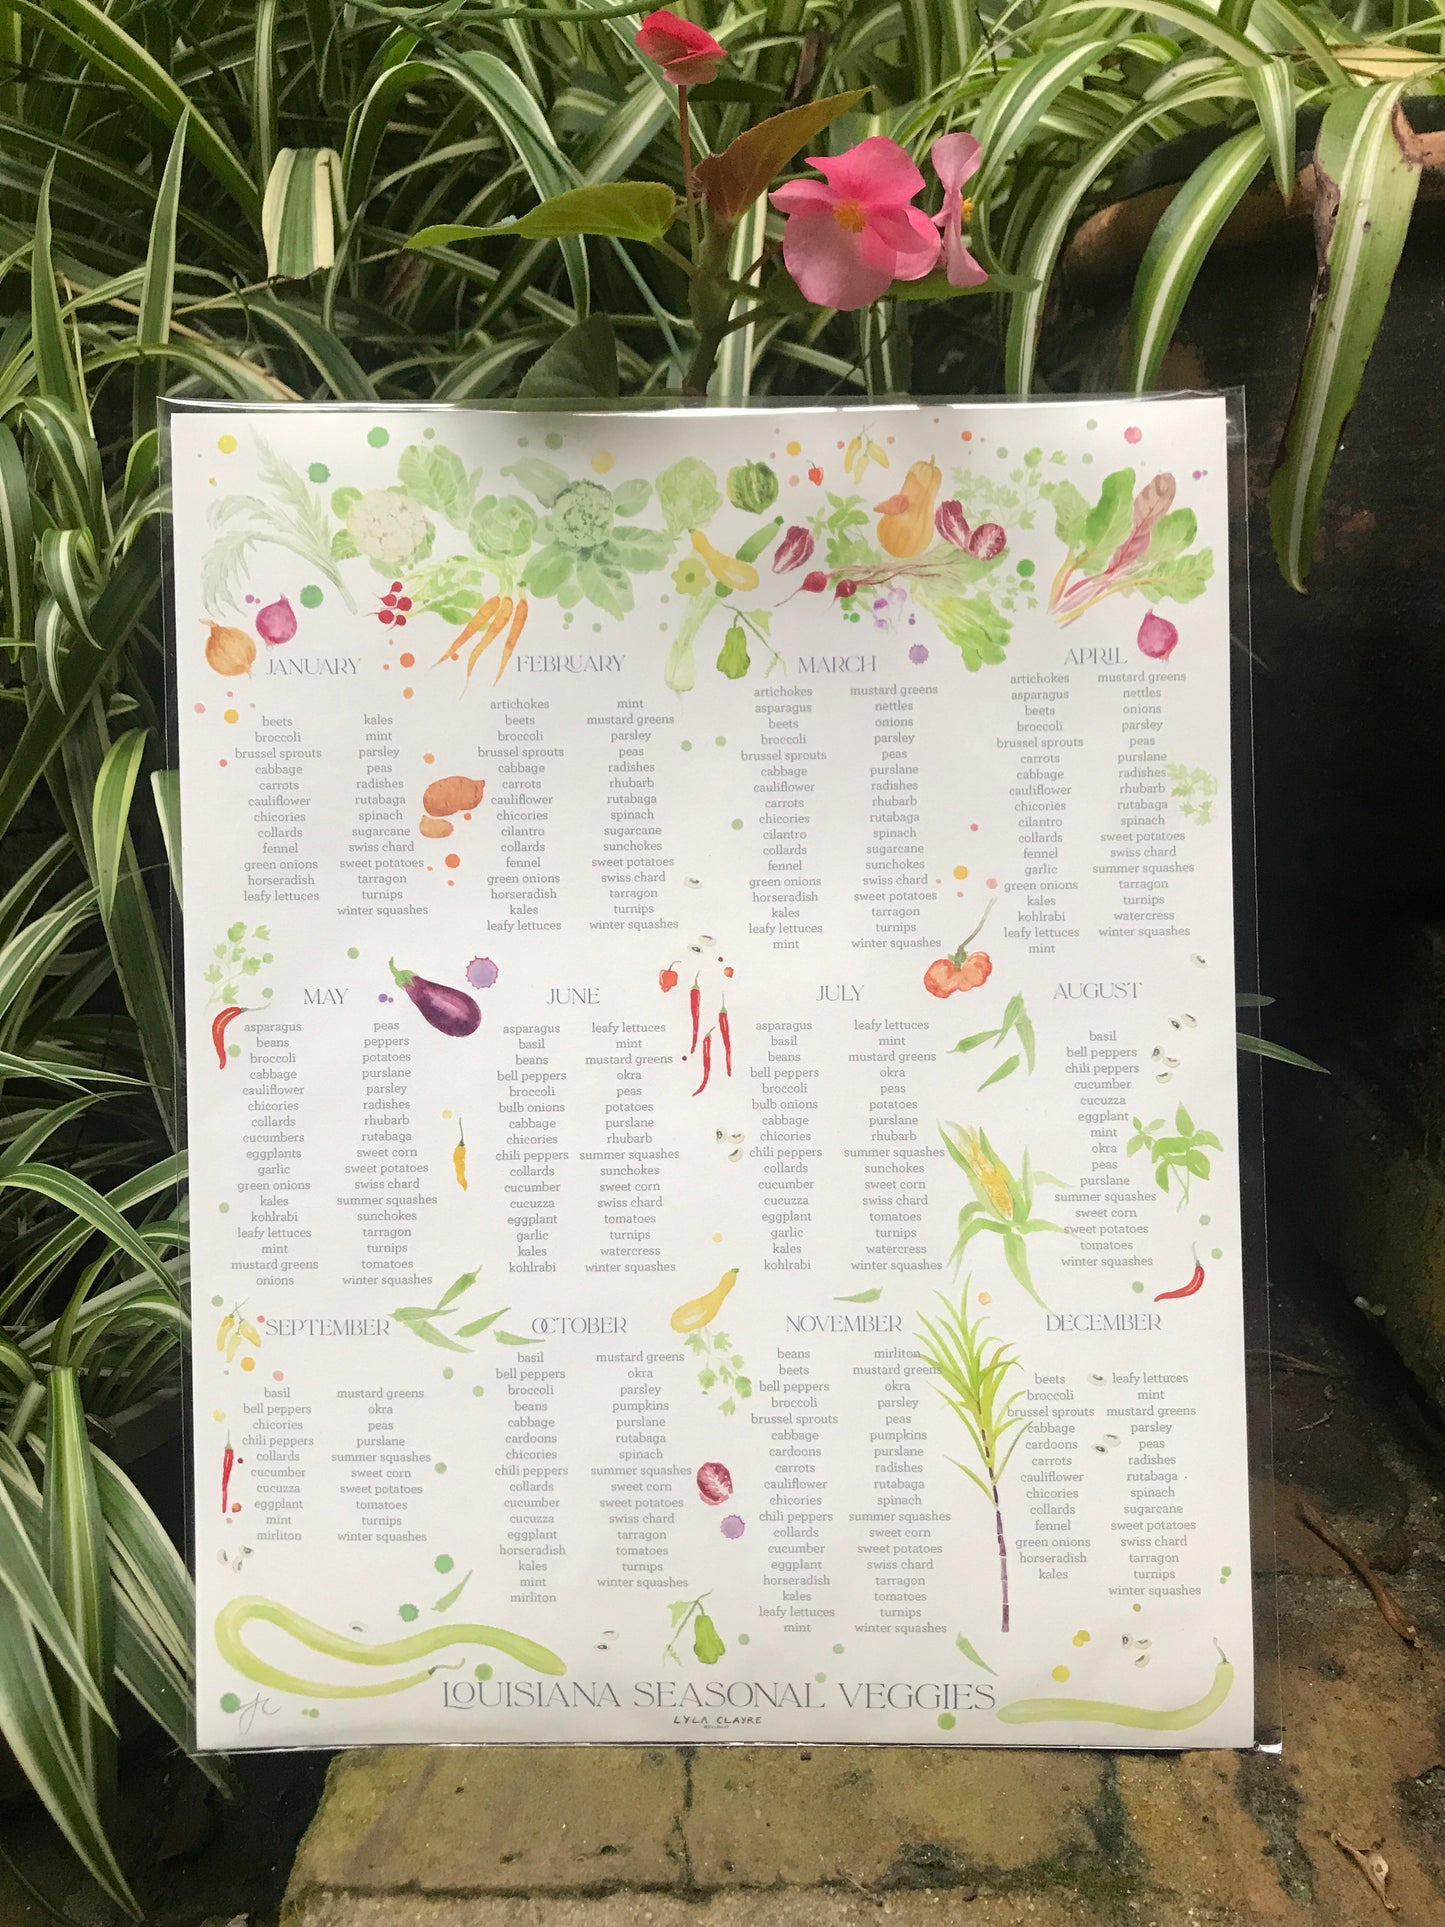 JANUARY
beets
broccoli
brussel sprouts
cabbage
carrots
cauliflower
chicories
collards
fennel
green onions
horseradish
leafy lettuces
kales
mint
parsley
peas
radishes
rutabaga
spinach
sugarcane
swiss chard
sweet potatoes
tarragon
turnips
winter squashes
FEBRUARY
artichokes
beets
broccoli
brussel sprouts
cabbage
carrots
cauliflower
chicories
cilantro
collards
fennel
green onions
horseradish
kales
leafy lettuces
mint
mustard greens
parsley
peas
radishes
rhubarb
rutabaga
spinach
sugarcane
sunchokes
sweet potatoes
swiss chard
tarragon
turnips
winter squashes
MARCH
artichokes
asparagus
beets
broccoli
brussel sprouts
cabbage
cauliflower
carrots
chicories
cilantro
collards
fennel
green onions
horseradish
kales
leafy lettuces
mint
mustard greens
nettles
onions
parsley
peas
purslane
radishes
rhubarb
rutabaga
spinach
sugarcane
sunchokes
swiss chard
sweet potatoes
tarragon
turnips
winter squashes
APRIL
artichokes
asparagus
beets
broccoli
brussel sprouts
carrots
cabbage
cauliflower
chicories
cilantro
collards
fennel
garlic
green onions
kales
kohlrabi
leafy lettuces
mint
mustard greens
nettles
onions
parsley
peas
purslane
radishes
rhubarb
rutabaga
spinach
sweet potatoes
swiss chard
summer squashes
tarragon
turnips
watercress
winter squashes
MAY
asparagus
beans
broccoli
cabbage
cauliflower
chicories
collards
cucumbers
eggplants
garlic
green onions
kales
kohlrabi
leafy lettuces
mint
mustard greens
onions
peas
peppers
potatoes
purslane
parsley
radishes
rhubarb
rutabaga
sweet corn
sweet potatoes
swiss chard
summer squashes
sunchokes
tarragon
turnips
tomatoes
winter squashes
JUNE
asparagus
basil
beans
bell peppers
broccoli
bulb onions
cabbage
chicories
chili peppers
collards
cucumber
cucuzza
eggplant
garlic
kales
kohlrabi
leafy lettuces
mint
mustard greens
okra
peas
potatoes
purslane
rhubarb
summer squashes
sunchokes
sweet corn
swiss chard
tomatoes
turnips
watercress
winter squashes
JULY
asparagus
basil
beans
bell peppers
broccoli
bulb onions
cabbage
chicories
chili peppers
collards
cucumber
cucuzza
eggplant
garlic
kales
kohlrabi
leafy lettuces
mint
mustard greens
okra
peas
potatoes
purslane
rhubarb
summer squashes
sunchokes
sweet corn
swiss chard
tomatoes
turnips
watercress
winter squashes
AUGUST
basil
bell peppers
chili peppers
cucumber
cucuzza
eggplant
mint
okra
peas
purslane
summer squashes
sweet corn
sweet potatoes
tomatoes
winter squashes
SEPTEMBER
basil
bell peppers
chicories
chili peppers
collards
cucumber
cucuzza
eggplant
mint
mirliton
mustard greens
okra
peas
purslane
summer squashes
sweet corn
sweet potatoes
tomatoes
turnips
winter squashes
OCTOBER
basil
bell peppers
broccoli
beans
cabbage
cardoons
chicories
chili peppers
collards
cucumber
cucuzza
eggplant
horseradish
kales
mint
mirliton
mustard greens
okra
parsley
pumpkins
purslane
rutabaga
spinach
summer squashes
sweet corn
sweet potatoes
swiss chard
tarragon
tomatoes
turnips
winter squashes
NOVEMBER
beans
beets
bell peppers
broccoli
brussel sprouts
cabbage
cardoons
carrots
cauliflower
chicories
chili peppers
collards
cucumber
eggplant
horseradish
kales
leafy lettuces
mint
mirliton
mustard greens
okra
parsley
peas
pumpkins
purslane
radishes
rutabaga
spinach
summer squashes
sweet corn
sweet potatoes
swiss chard
tarragon
tomatoes
turnips
winter squashes
DECEMBER
beets
broccoli
brussel sprouts
cabbage
cardoons
carrots
cauliflower
chicories
collards
fennel
green onions
horseradish
kales
leafy lettuces
mint
mustard greens
parsley
peas
radishes
rutabaga
spinach
sugarcane
sweet potatoes
swiss chard
tarragon
turnips
winter squashes
LOUISIANA SEASONAL VEGGIES
LYLA CLAYRE